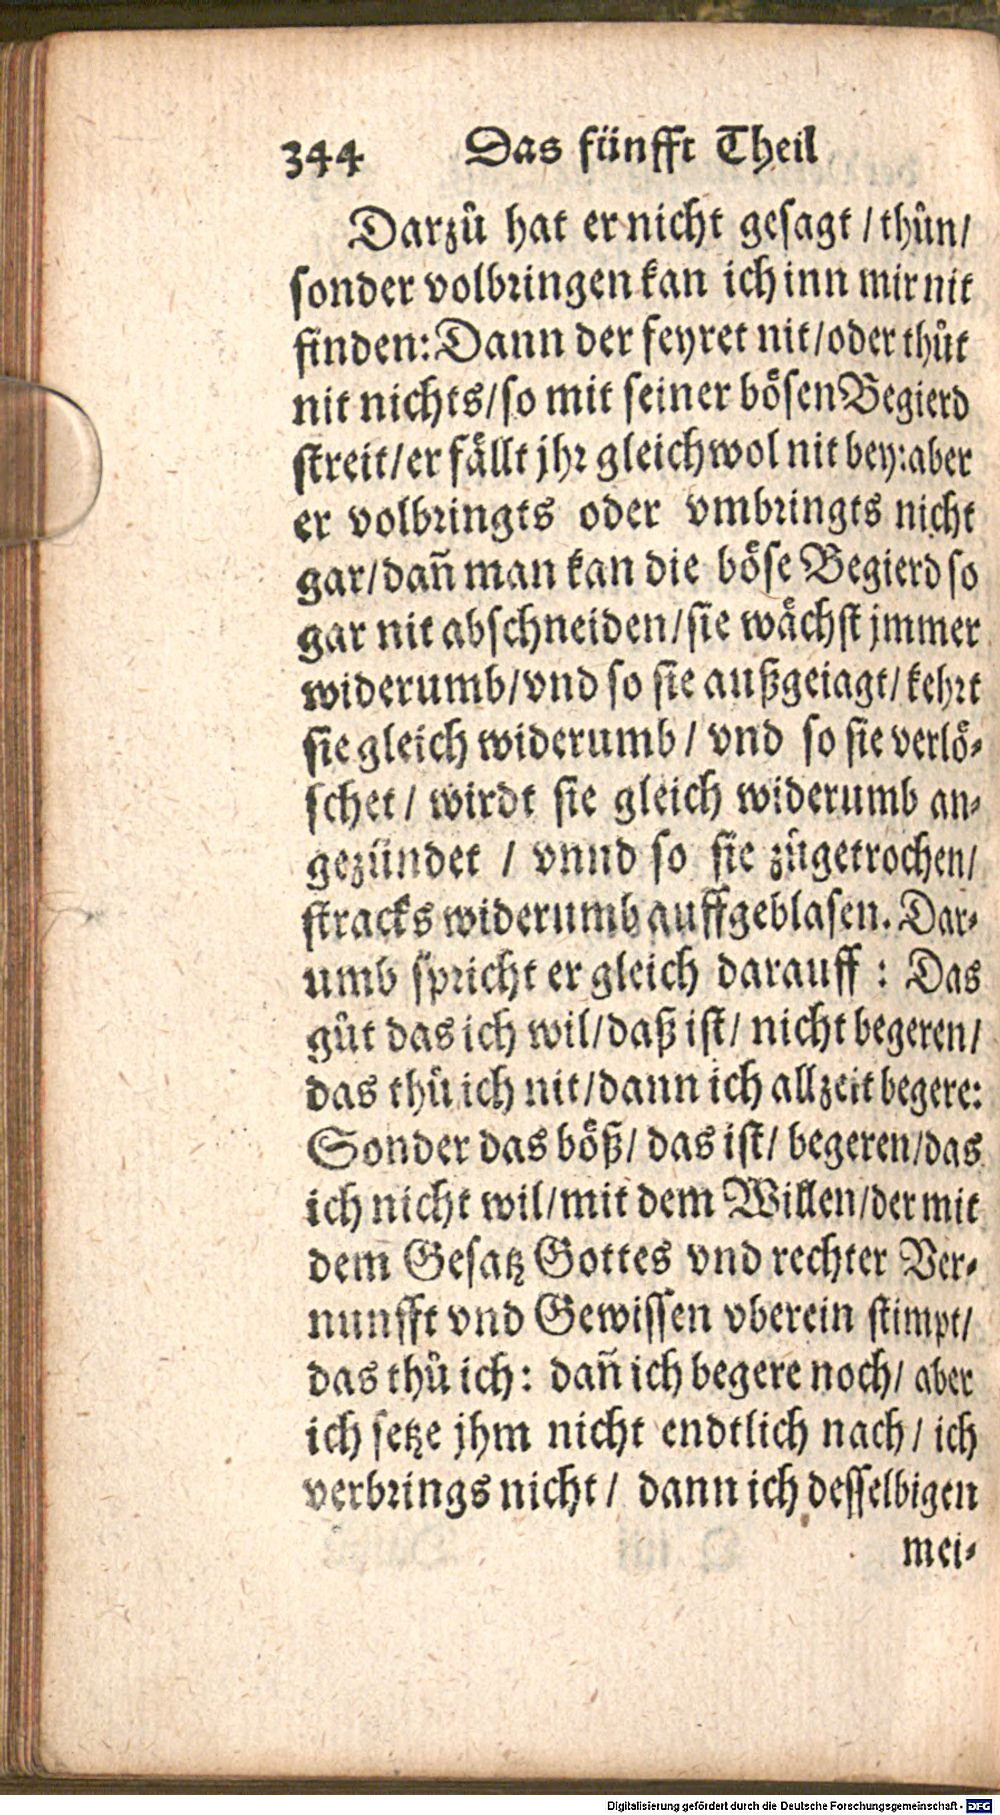 344 Das fünfft Theil
Darzů hat er nicht gesagt / thůn/
sonder volbringen kan ich inn mir nit
finden: Dann der feyret nit/oder thůt
nit nichts/so mit seiner bösen Begierd
streit/er fällt jhr gleichwol nit bey:aber
er volbringts oder vmbringts nicht
gar/dañ man kan die böse Begierd so
gar nit abschneiden/sie wächst jmmer
widerumb/vnd so sie außgeiagt/kehrt
sie gleich widerumb / vnd so sie verlö-
schet / wirdt sie gleich widerumb an-
gezündet / vnnd so sie zůgetrochen/
stracks widerumb auffgeblasen. Dar-
umb spricht er gleich darauff : Das
gůt das ich wil/daß ist/ nicht begeren/
das thů ich nit/dann ich allzeit begere:
Sonder das böß/ das ist/ begeren/das
ich nicht wil/mit dem Willen/der mit
dem Gesatz Gottes vnd rechter Ver-
nunfft vnd Gewissen vberein stimpt/
das thů ich: dañ ich begere noch/ aber
ich setze jhm nicht endtlich nach / ich
verbrings nicht / dann ich desselbigen
mei-
Digitalisierung gefördert durch die Deutsche Forschungsgemeinschaft - DFG